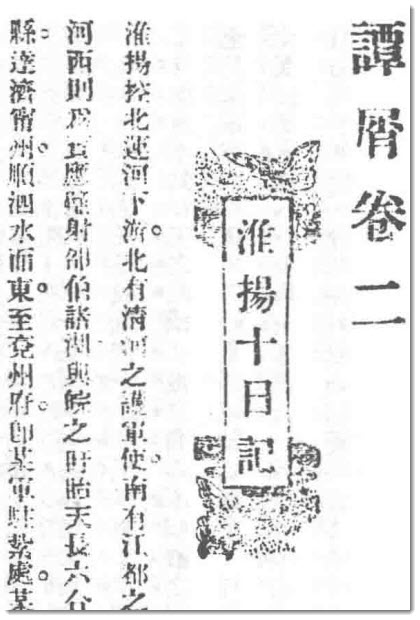 譚屑卷二
淮揚十日記
淮揚控北運河下游。北有淸河之護軍使。南有江都之
河西則爲寶應射邵伯諸湖與皖之盱眙天長六合
縣。達濟甯州。順泗水而東。至兗州府。卽某軍駐紮處。某